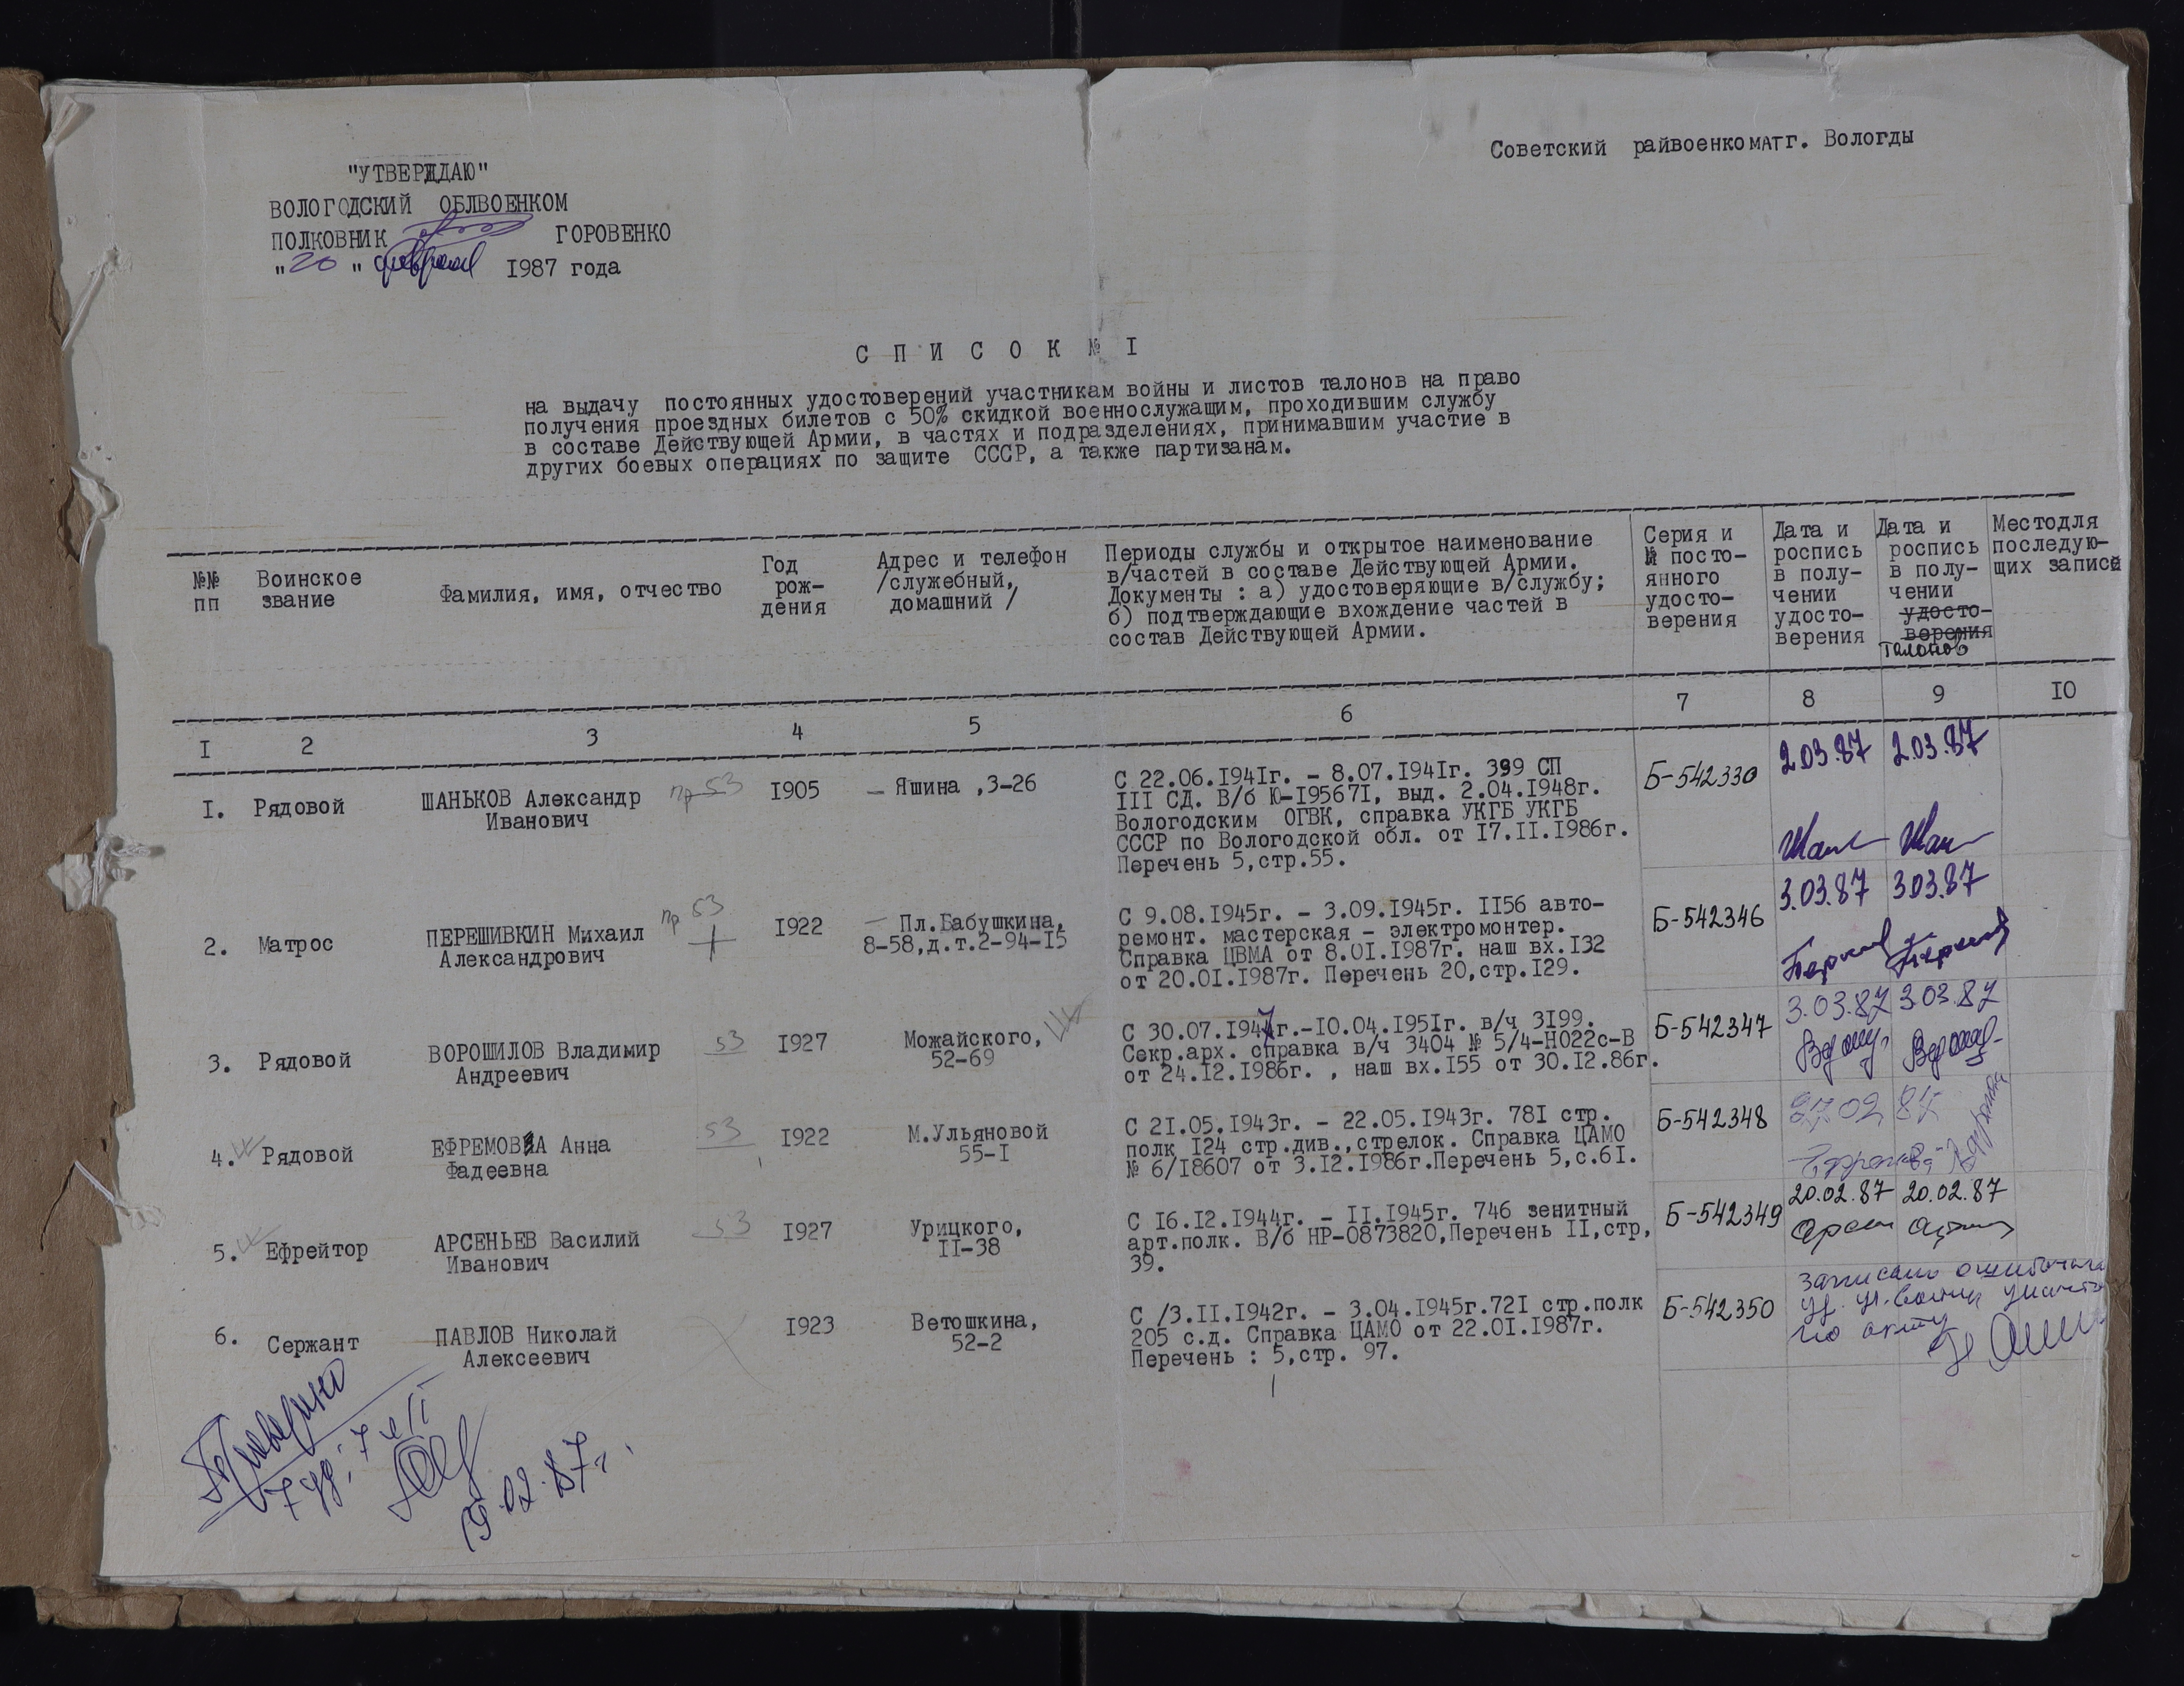 Советский райвоенкомат г. Вологды
"УТВЕРЖДАЮ"
ВОЛОГОДСКИЙ ОБЛВОЕНКОМ
ПОЛКОВНИК ГОРОВЕНКО
"20" февраля 1987 года
С П И С О К № I
на выдачу постоянных удостоверений участникам войны и листов талонов на право
получения проездных билетов с 50% скидкой военнослужащим, проходившим службу
в составе Действующей Армии, в частях и подразделениях, принимавшим участие в
других боевых операциях по защите СССР, а также партизанам.
№№
пп
Воинское
звание
Фамилия, имя, отчество
Год
рож-
дения
Адрес и телефон
/служебный,
домашний /
Периоды службы и открытое наименование
в/частей в составе Действующей Армии.
Документы : а) удостоверяющие в/службу;
б) подтверждающие вхождение частей в
состав Действующей Армии.
Серия и
№ посто-
янного
удосто-
верения
Дата и
роспись
в полу-
чении
удосто-
верения
Дата и
роспись
в полу-
чении
удосто-
верения
талонов
Место для
последую-
щих записей
I 2 3 4 5 6 7 8 9 IO
I. Рядовой
ШАНЬКОВ Александр
Иванович
пр 53
I905
– Яшина ,3-26
С 22.06.I94Iг. – 8.07.I94Iг. 399 СП
III СД. В/б Ю-I9567I, выд. 2.04.I948г.
Вологодским ОГВК, справка УКГБ УКГБ
СССР по Вологодской обл. от I7.II.I986г.
Перечень 5,стр.55.
Б-542330
2.03.87 2.03.87
2. Матрос
ПЕРЕШИВКИН Михаил
Александрович
пр 53
I922
– Пл.Бабушкина,
8-58,д.т.2-94-I5
С 9.08.I945г. – 3.09.I945г. II56 авто-
ремонт. мастерская – электромонтер.
Справка ЦВМА от 8.0I.I987г. наш вх.I32
от 20.0I.I987г. Перечень 20,стр.I29.
Б-542346
3.03.87 3.03.87
3. Рядовой
ВОРОШИЛОВ Владимир
Андреевич
53
I927
Можайского,
52-69
С 30.07.I947г.-IO.04.I95Iг. в/ч 3I99.
Секр.арх. справка в/ч 3404 № 5/4-Н022с-В
от 24.I2.I986г. , наш вх.I55 от 30.I2.86г.
Б-542347
3.03.87 3.03.87
4. Рядовой
ЕФРЕМОВА Анна
Фадеевна
53
I922
М.Ульяновой
55-I
С 2I.05.I943г. – 22.05.I943г. 78I стр.
полк I24 стр.див.,стрелок. Справка ЦАМО
№ 6/I8607 от 3.I2.I986г.Перечень 5,с.6I.
Б-542348
27.02 87
5. Ефрейтор
АРСЕНЬЕВ Василий
Иванович
53
I927
Урицкого,
II-38
С I6.I2.I944г. – II.I945г. 746 зенитный
арт.полк. В/б НР-0873820,Перечень II,стр,
39.
Б-542349
20.02.87 20.02.87
6. Сержант
ПАВЛОВ Николай
Алексеевич
I923
Ветошкина,
52-2
С /3.II.I942г. – 3.04.I945г.72I стр.полк
205 с.д. Справка ЦАМО от 22.0I.I987г.
Перечень : 5,стр. 97.
Б-542350
записано ошибочно
по акту
Проверено
19.02.87г.